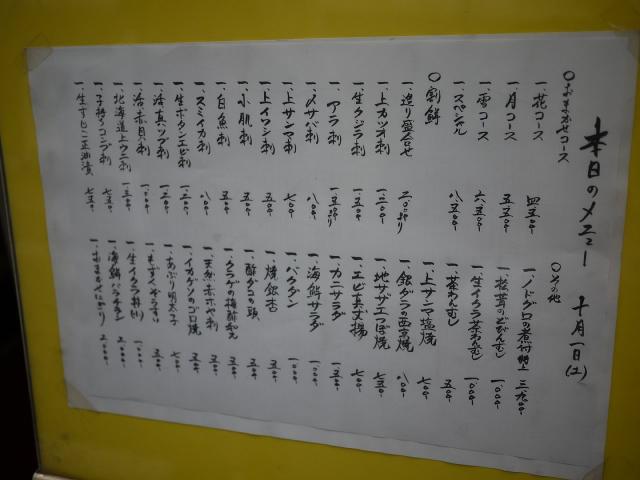 本日のメニュー 十月一日(土)
○おまかせコース
一、花コース 四、五〇〇
一、月コース 五、五〇〇
一、雪コース 六、五〇〇
一、スペシャル 八、五〇〇
○割鮮
一、造り盛合せ 二、〇〇〇より
一、上カツオ刺 一、二〇〇
一、生クジラ刺 一、五〇〇
一、アラ刺 一、五〇〇より
一、〆サバ刺 八〇〇
一、上サンマ刺 七〇〇
一、上イワシ刺 五〇〇
一、小肌刺 五〇〇
一、白魚刺 五〇〇
一、スミイカ刺 八〇〇
一、生ボタンエビ刺 一、二〇〇
一、活真ツブ刺 一、二〇〇
一、活赤貝刺 一、〇〇〇
一、北海道上ウニ刺 一、三〇〇
一、子持コンブ刺 七五〇
一、生すじこ正油漬 七五〇
○その他
一、ノドグロの煮付 特上 三、九〇〇
一、松茸のどびんむし 一、〇〇〇
一、生イクラ茶わんむし 一、〇〇〇
一、茶わんむし 五〇〇
一、上サンマ塩焼 七〇〇
一、銀ダラの西京焼 八〇〇
一、地サザエつぼ焼 七五〇
一、エビ真丈揚 七〇〇
一、カニサラダ 一、五〇〇
一、海鮮サラダ 一、〇〇〇
一、バクダン 一、〇〇〇
一、焼銀杏 五〇〇
一、酢ダコの頭 五〇〇
一、クラゲの梅酢和え 五〇〇
一、天然赤ホヤ刺 五〇〇
一、イカゲソのゴロ焼 五〇〇
一、あぶり明太子 七〇〇
一、もずくぞうすい 五〇〇
一、生イクラ丼(小) 一、〇〇〇
一、海鮮バラチラシ 二、〇〇〇
一、おまかせにぎり 二、〇〇〇